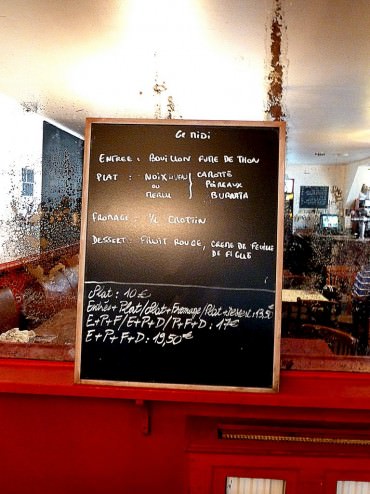 Ce midi
ENTREE : BOUILLON FUMÉ DE THON
PLAT : NOIX
OU
MERLU
CAROTTE
BURRATA
FROMAGE : ½ CROTTIN
DESSERT : FRUIT ROUGE, CREME DE FEUILLE
DE FIGUE
Plat : 10 €
Entrée + Plat / Plat + Fromage / Plat + Dessert : 13,50
E + P + F / E + P + D / P + F + D : 17€
E + P + F + D : 19,50€